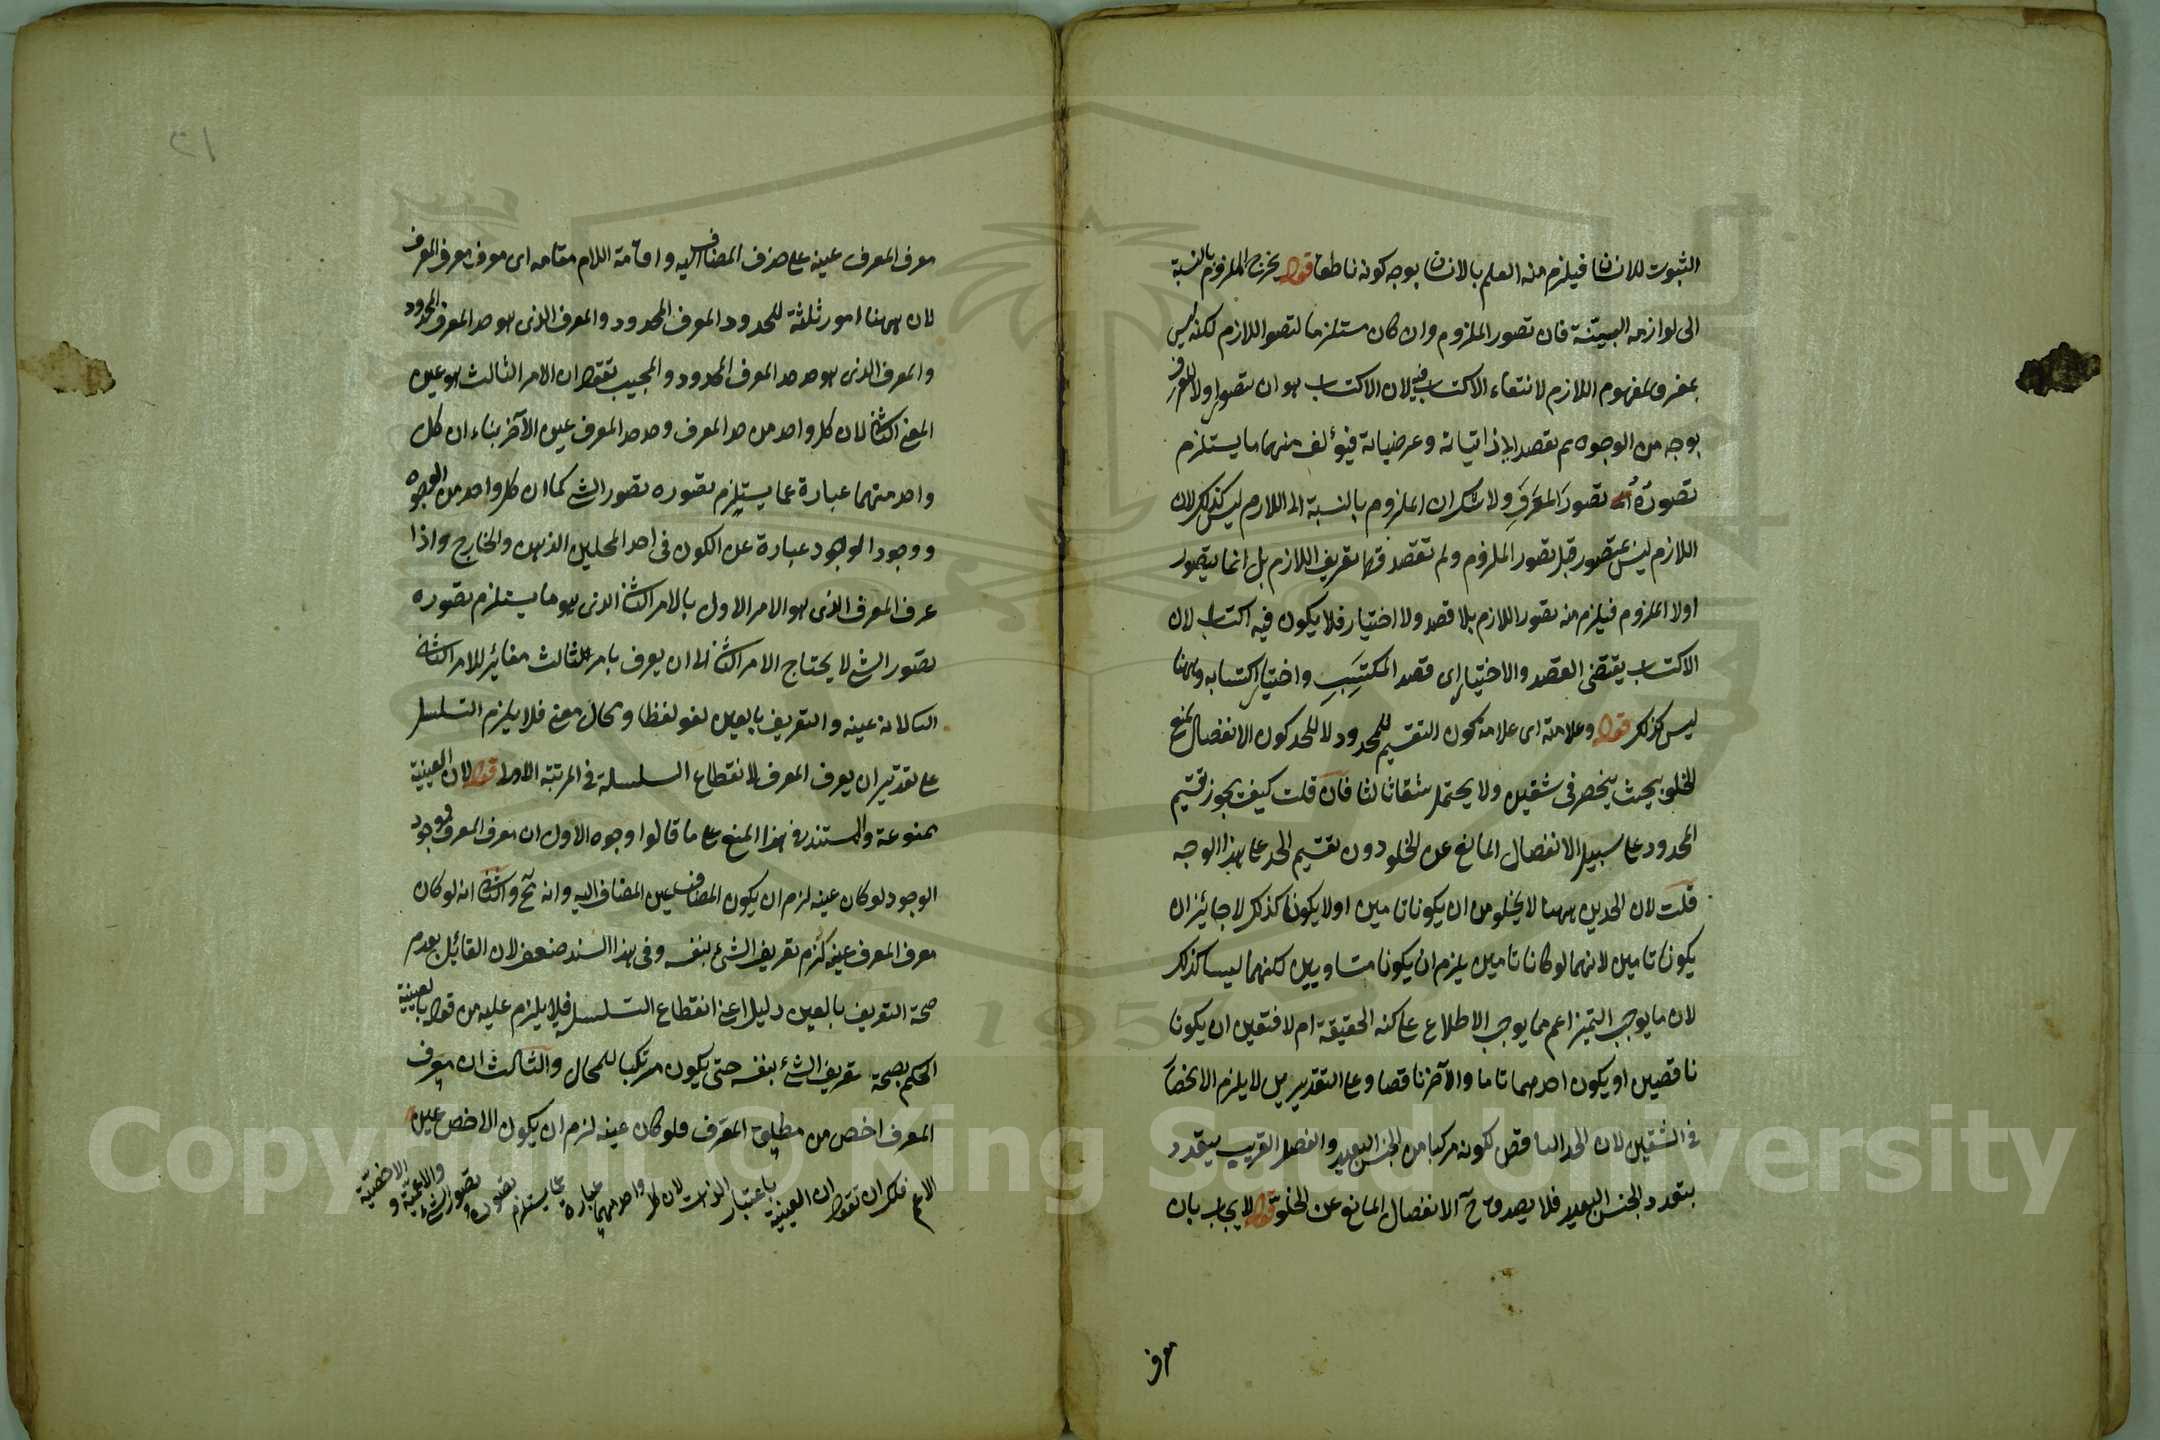 الثبوت للانسان فيلزم منه العلم بالانسان بوجه كونه ناطقا قوله يخرج الملزوم بالنسبة
الى لوازمه البينة فان تصور الملزوم وان كان مستلزما لتصور اللازم لكنه ليس
بمعرف لمفهوم اللازم لانتفاء الاكتساب فيه لان الاكتساب هو ان يتصور اولا المعرف
بوجه من الوجوه ثم يقصد الى ذاتياته وعرضياته فيؤلف منهما ما يستلزم
تصوره تصور المعرف ولا شك ان الملزوم بالنسبة الى اللازم ليس كذلك لان
اللازم ليس بمتصور قبل تصور الملزوم ولم تقصد تعريف اللازم بل انما يتصور
اولا الملزوم فيلزم منه تصور اللازم بلا قصد ولا اختيار فلا يكون فيه اكتساب لان
الاكتساب يقتضى القصد والاختيار اى قصد المكتسِب واختيار اكتسابه وههنا
ليس كذلك قوله وعلامته اى علامة كون التقسيم للمحدود لا للحد كون الانفصال لمنع
الخلو بحيث ينحصر فى شقين ولا يحتمل شقا ثالثا فان قلت كيف يجوز تقسيم
المحدود على سبيل الانفصال المانع عن الخلو دون تقسيم الحد على هذا الوجه
قلت لان الحدين ههنا لا يخلو من ان يكونا تامين اولا يكونا كذلك لا جايز ان
يكونا تامين لانهما لو كانا تامين يلزم ان يكونا متساويين لكنهما ليسا كذلك
لان ما يوجب التميز اعم مما يوجب الاطلاع على كنه الحقيقة ام لا فتعين ان يكونا
ناقصين او يكون احدهما تاما والآخر ناقصا وعلى التقديرين لا يلزم الانحصار
فى الشقين لان الحد الناقص لكونه مركبا من الجنس البعيد والفصل القريب يتعدد
بتعدد الجنس البعيد فلا يصدق ح الانفصال المانع عن الخلو قوله لا يجاب بان
معرف
٢١
معرف المعرف عينه على حذف المضاف اليه واقامة اللام مقامه اى معرف معرف المعرف
لان ههنا امور ثلثة للمحدود المعرف المحدود والمعرف الذى هو حد المعرف المحدود
والمعرف الذى هو حد حد المعرف المحدود والمجيب يقول ان الامر الثالث هو عين
المعنى الثانى لان كل واحد من حد المعرف وحد حد المعرف عين الآخر بناء ان كل
واحد منهما عبارة عما يستلزم تصوره تصور الشئ كما ان كل واحد من الوجود
ووجود الوجود عبارة عن الكون فى احد المحلين الذهن والخارج واذا
عرف المعرف الذى هو الامر الاول بالامر الثانى الذى هو ما يستلزم تصوره
تصور الشئ لا يحتاج الامر الثانى الى ان يعرف بامر الثالث مغائر للامر الثانى
الثالث لانه عينه والتعريف بالعين لغو لفظا ومحال معنى فلا يلزم التسلسل
على تقدير ان يعرف المعرف لانقطاع السلسلة فى المرتبة الاولى قوله لان العينية
ممنوعة والمستند فى هذا المنع على ما قالوا وجوه الاول ان معرف المعرف ووجود
الوجود لو كان عينه لزم ان يكون المضاف عين المضاف اليه وانه مح والثانى انه لو كان
معرف المعرف عينه لزم تعريف الشئ بنفسه وفى هذا السند ضعف لان القائل بعدم
صحة التعريف بالعين دليلا على انقطاع التسلسل فلا يلزم عليه من قوله بالعينية
الحكم بصحة تعريف الشئ بنفسه حتى يكون مرتكبا للمحال والثالث ان معرف
المعرف اخص من مطلق المعرف فلو كان عينه لزم ان يكون الاخص عين
الاعم فلك ان تقول ان العينية باعتبار الذات لان كل واحد منهما عبارة عما يستلزم تصوره تصور الشئ والاعمية والاخصية
Copyright © King Saud University
195